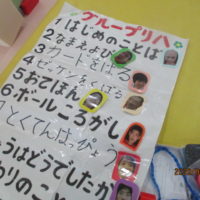 グループリハ
1 はじめのことば
2 なまえよびのことば
3 カードをはる
4 ゼッケンをくばる
5 おてほん
6 ボールころがし
7 とくてんはっぴょう
うはどうでしたか
わりのことば